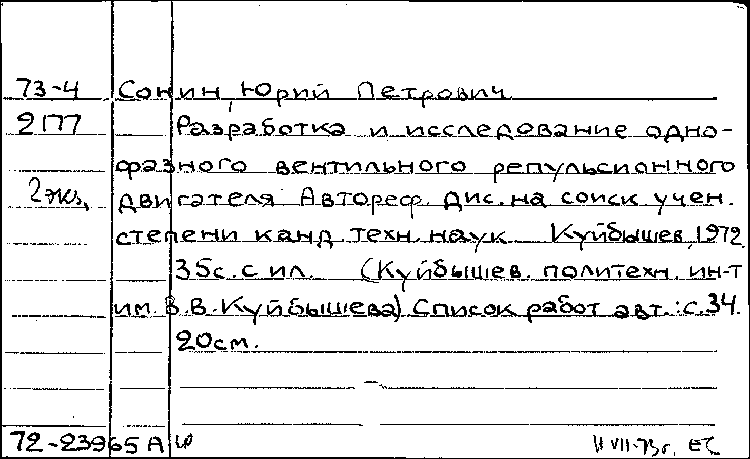 73-4 Сонин, Юрий Петрович
2177 Разработка и исследование одно-
фазного вентильного репульсионного
2 экз. двигателя Автореф. дис. на соиск учен.
степени канд. техн. наук Куйбышев, 1972
35с. с ил. (Куйбышев. политехн. ин-т
им. В.В. Куйбышева) Список работ авт.: с.34.
20см.
72-23965 А